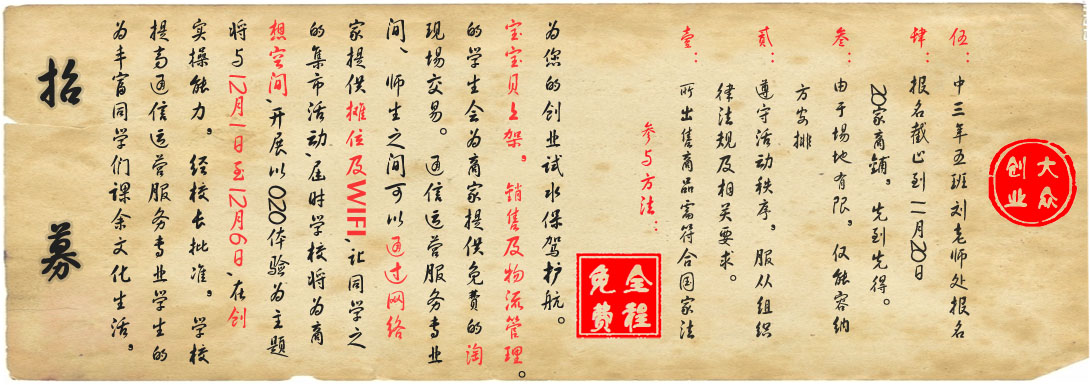 招募
为丰富同学们课余文化生活，
提高通信运营服务专业学生的
实操能力，经校长批准，学校
将与12月1日至12月6日、在创
想空间、开展以O2O体验为主题
的集市活动、届时学校将为商
家提供摊位及WIFI、让同学之
间、师生之间可以通过网络
现场交易。通信运营服务专业
的学生会为商家提供免费的淘
宝宝贝上架，销售及物流管理。
为您的创业试水保驾护航。
全程免费
参与方法：
壹：所出售商品需符合国家法
律法规及相关要求。
贰：遵守活动秩序，服从组织
方安排
叁：由于场地有限，仅能容纳
20家商铺，先到先得。
肆：报名截止到11月20日
伍：中三年五班刘老师处报名
大众创业